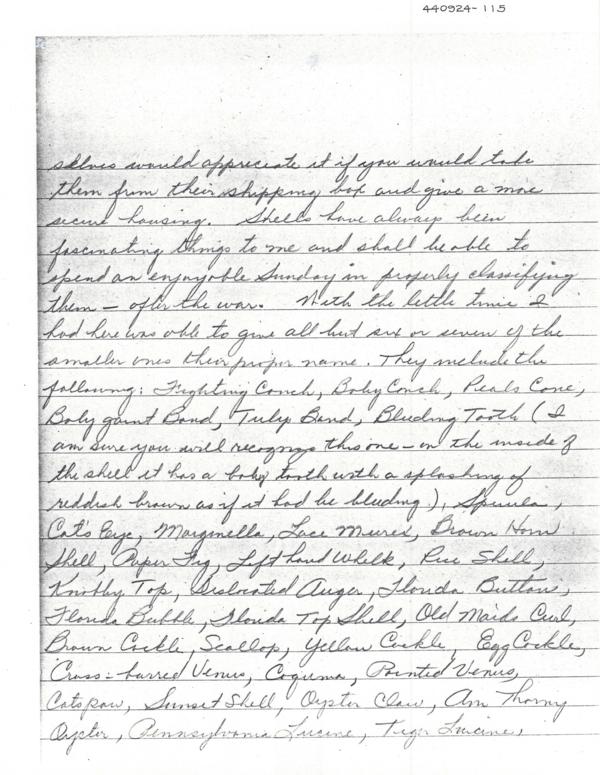 440924-115
selves would appreciate it if you would take
them from their shipping box and give a more
secure housing. Shells have always been
fascinating things to me and shall be able to
spend an enjoyable Sunday in properly classifying
them - after the war. With the little time I
had here was able to give all but six or seven of the
smaller ones their proper name. They include the
following: Fighting Conch, Baby Conch, Peals Cone,
Baby gaint Band, Tulip Band, Bleeding Tooth (I
am sure you will recognize this one - on the inside of
the shell it has a baby tooth with a splashing of
reddish brown as if it had be bleeding), Spirula,
Cat's Eye, Marginella, Lace Murex, Brown Horn
Shell, Paper Fig, Left hand Whelk, Rice Shell,
Knobby Top, Dislocated Auger, Florida Button,
Florida Bubble, Florida Top Shell, Old Maids Curl,
Brown Cockle, Scallop, Yellow Cockle, Egg Cockle,
Cross-barred Venus, Coquina, Pointed Venus,
Catspaw, Sunset Shell, Oyster Claw, Am Thorny
Oyster, Pennsylvania Lucine, Tiger Lucine,